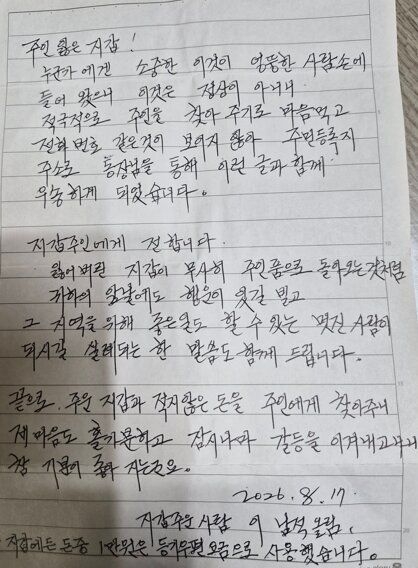 주인 잃은 지갑!
누군가에겐 소중한 이것이 엉뚱한 사람손에
들어 왔으니 이것은 정상이 아니니
적극적으로 주인을 찾아 주기로 마음먹고
전화 번호 같은것이 보이지 않아 주민등록지
주소로 통장님을 통해 이런 글과 함께
우송하게 되었습니다.
지갑주인에게 전합니다.
잃어버린 지갑이 무사히 주인품으로 돌아오는것처럼
귀하의 앞날에도 행운이 있길 빌고
그 지역을 위해 좋은일도 할 수 있는 멋진 사람이
되시길 한 말씀도 함께 드립니다.
끝으로, 주운 지갑과 적지않은 돈을 주인에게 찾아주니
제 마음도 홀가분하고 잠시나마 갈등을 이겨내고나니
참 기분이 좋아 지는군요.
2026. 8. 17.
지갑주운 사람 이 남석 올림.
지갑에든 돈중 1만원은 등기우편 요금으로 사용했습니다.